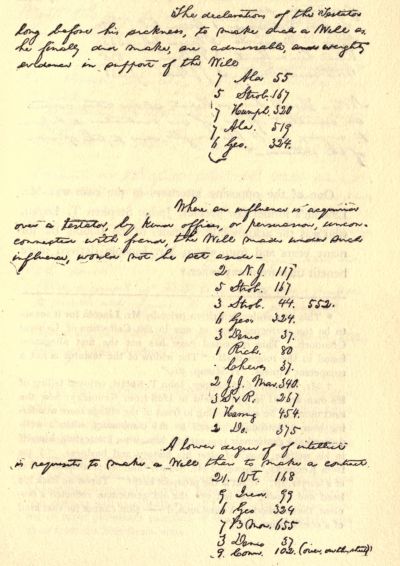 The declarations of the Testator
long before his sickness, to make such a Will as
he finally did make, are admissable, and weighty
evidence in support of the Will
7 Ala 55
5 Strob. 167
7 Humph. 320
7 Ala. 519
6 Geo. 324.
Where an influence is acquired
over a testator, by kind offices, or persuasion, uncon-
connected with fraud, the Will made under such
influence, would not be set aside—
2 N.J. 117
5 Strob. 167
3 Strob. 44. 552.
6 Geo. 324.
3 Denio 37.
1 Rich. 80
Cheves 37.
2 J.J. Mar. 340.
3 S & R. 267
1 454.
2 Do. 375
A lower degree of of intellect
is requisite to make a Will than to make a contract.
21. Vt. 168
9 99
6 Geo 324
7 B Mon. 655
3 Denio 37
9. Conn. 102. (over,